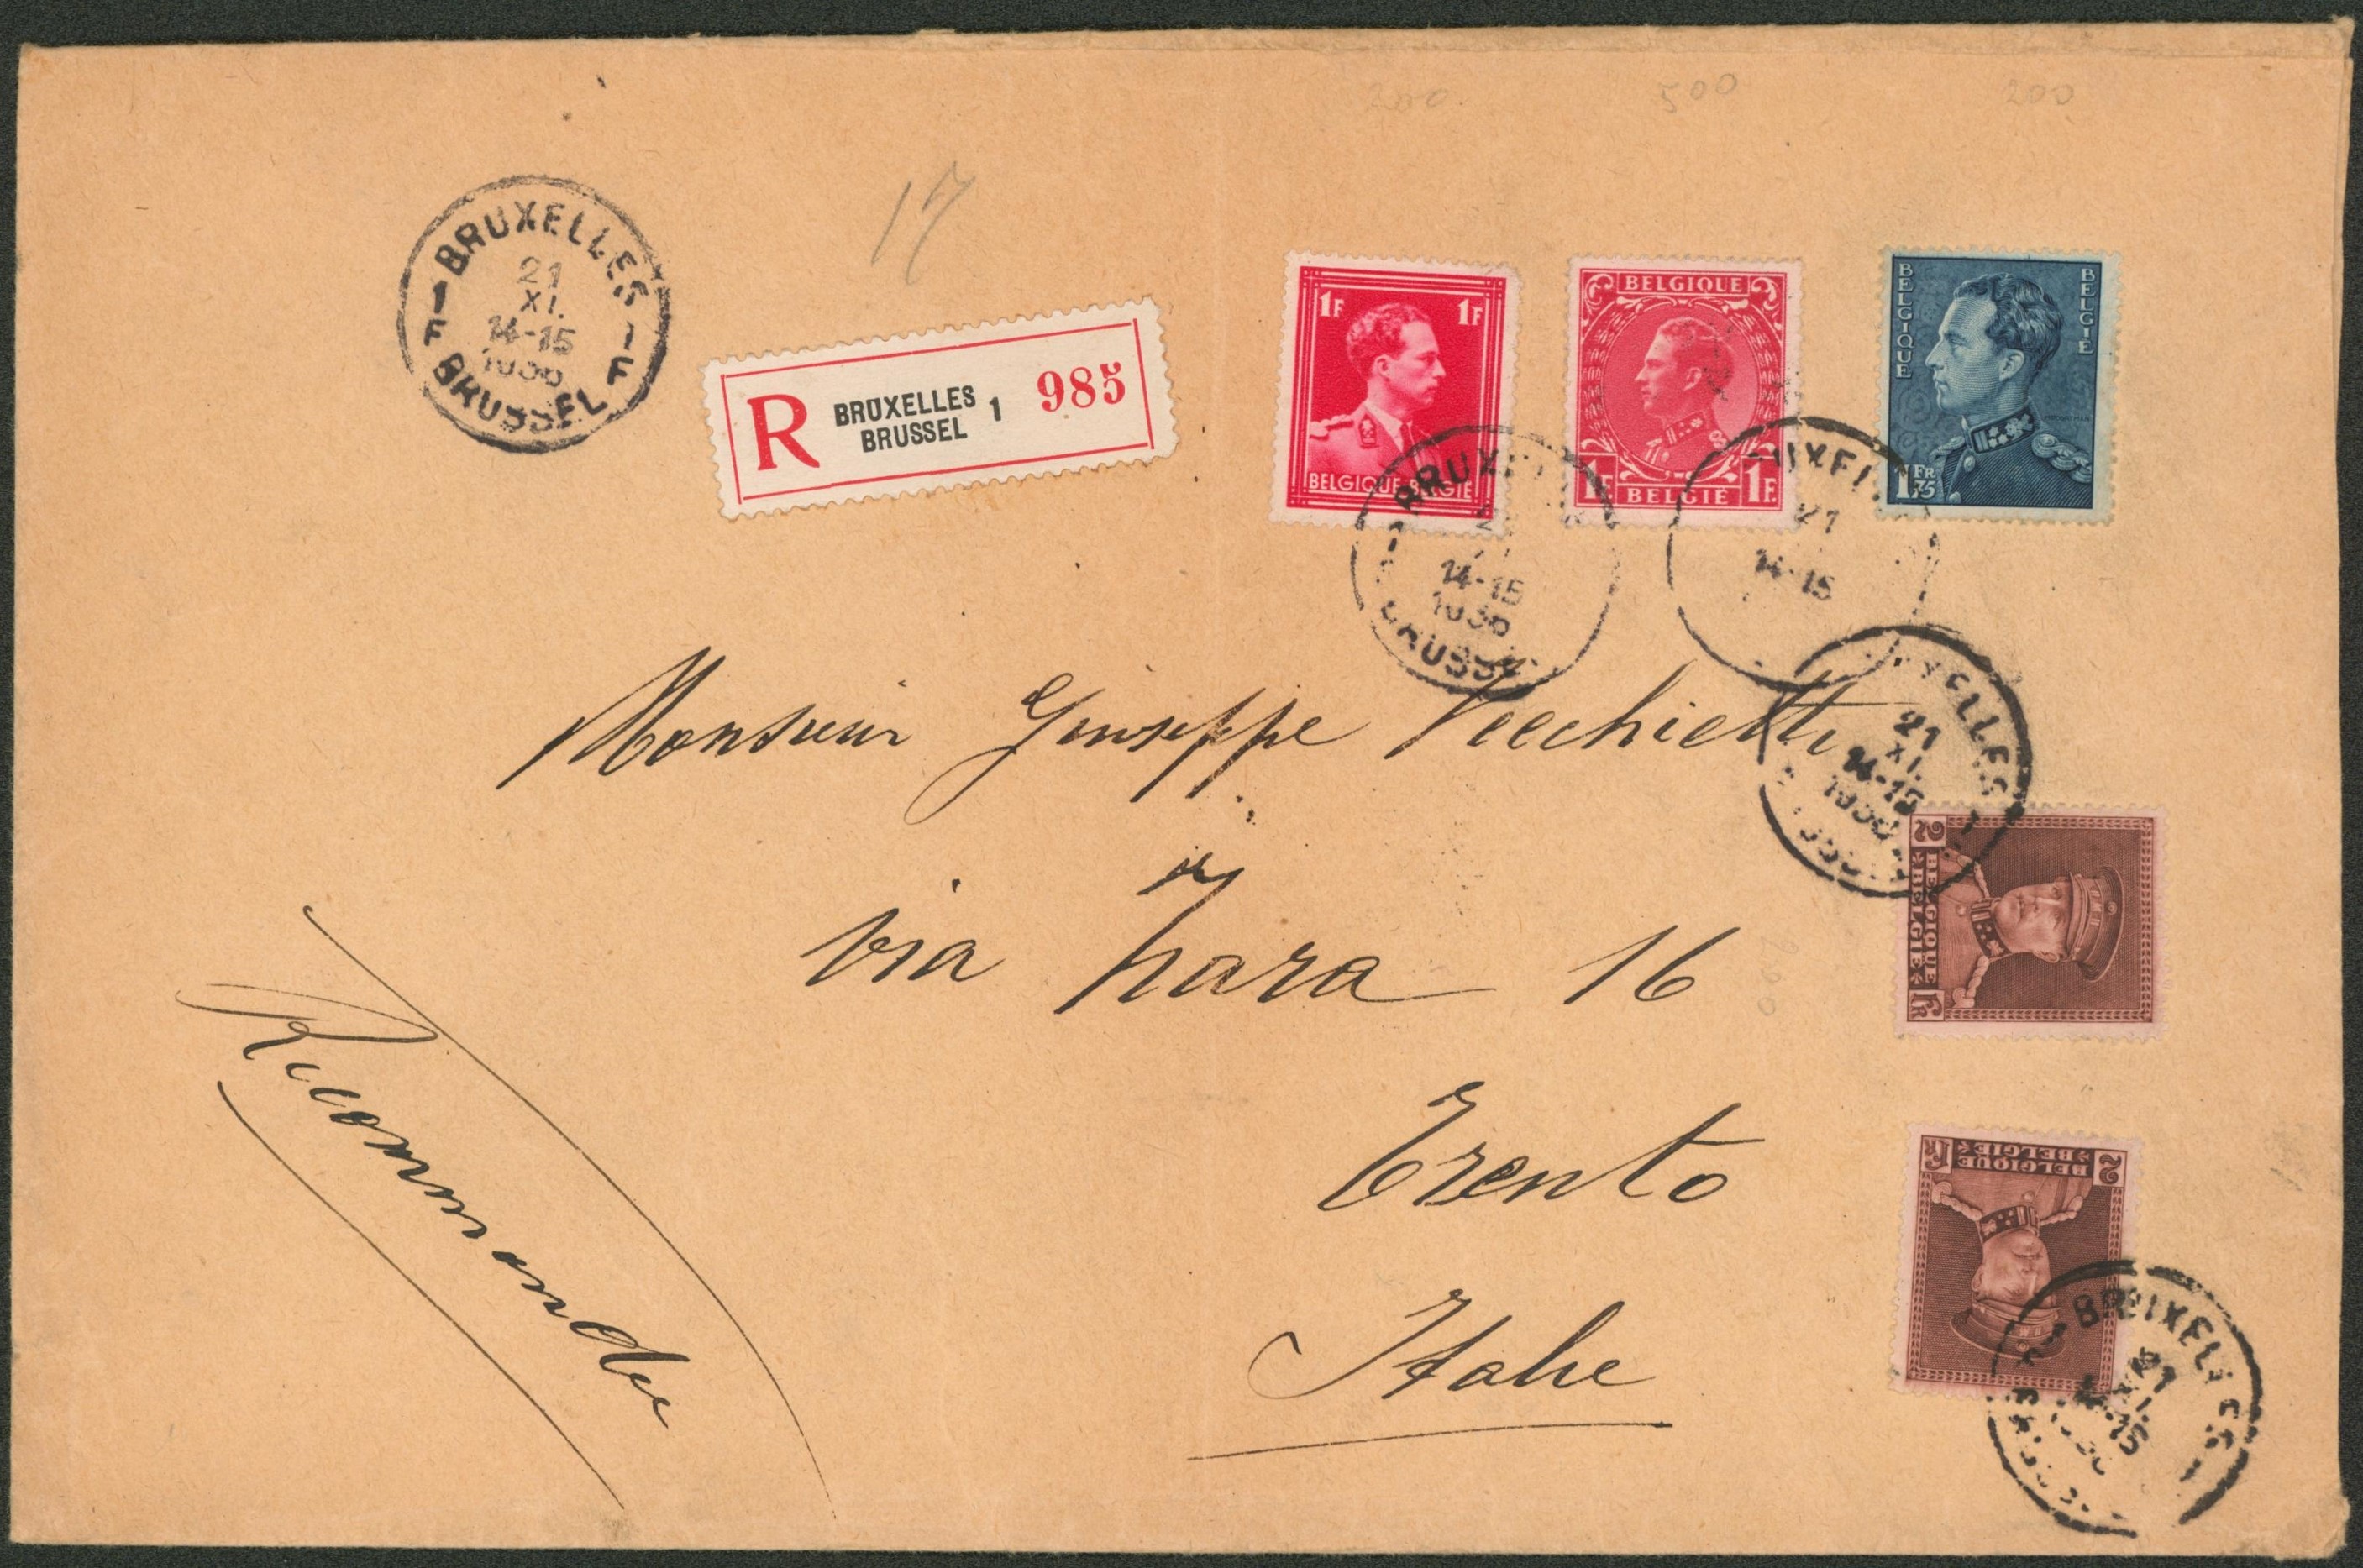 200 500 200
17
BRUXELLES
21
XI.
14-15
1936
1F 1F
BRUSSEL
R BRUXELLES 1 985
BRUSSEL
1F 1F
BELGIQUE-BELGIE
BELGIQUE
1F 1F
BELGIË
BELGIQUE BELGIE
1 FR 75
BRUXE
14-15
1936
BRUSSE
UXEL
21
14-15
XELLES
21
XI.
14-15
1936
2 BELGIQUE FR
BELGIE
Monsieur Giuseppe Vecchietti
via Zara 16
200
Trento
Italie
Recommandée
2 BELGIQUE FR
BELGIE
BRUXELLES
21
XI.
14-15